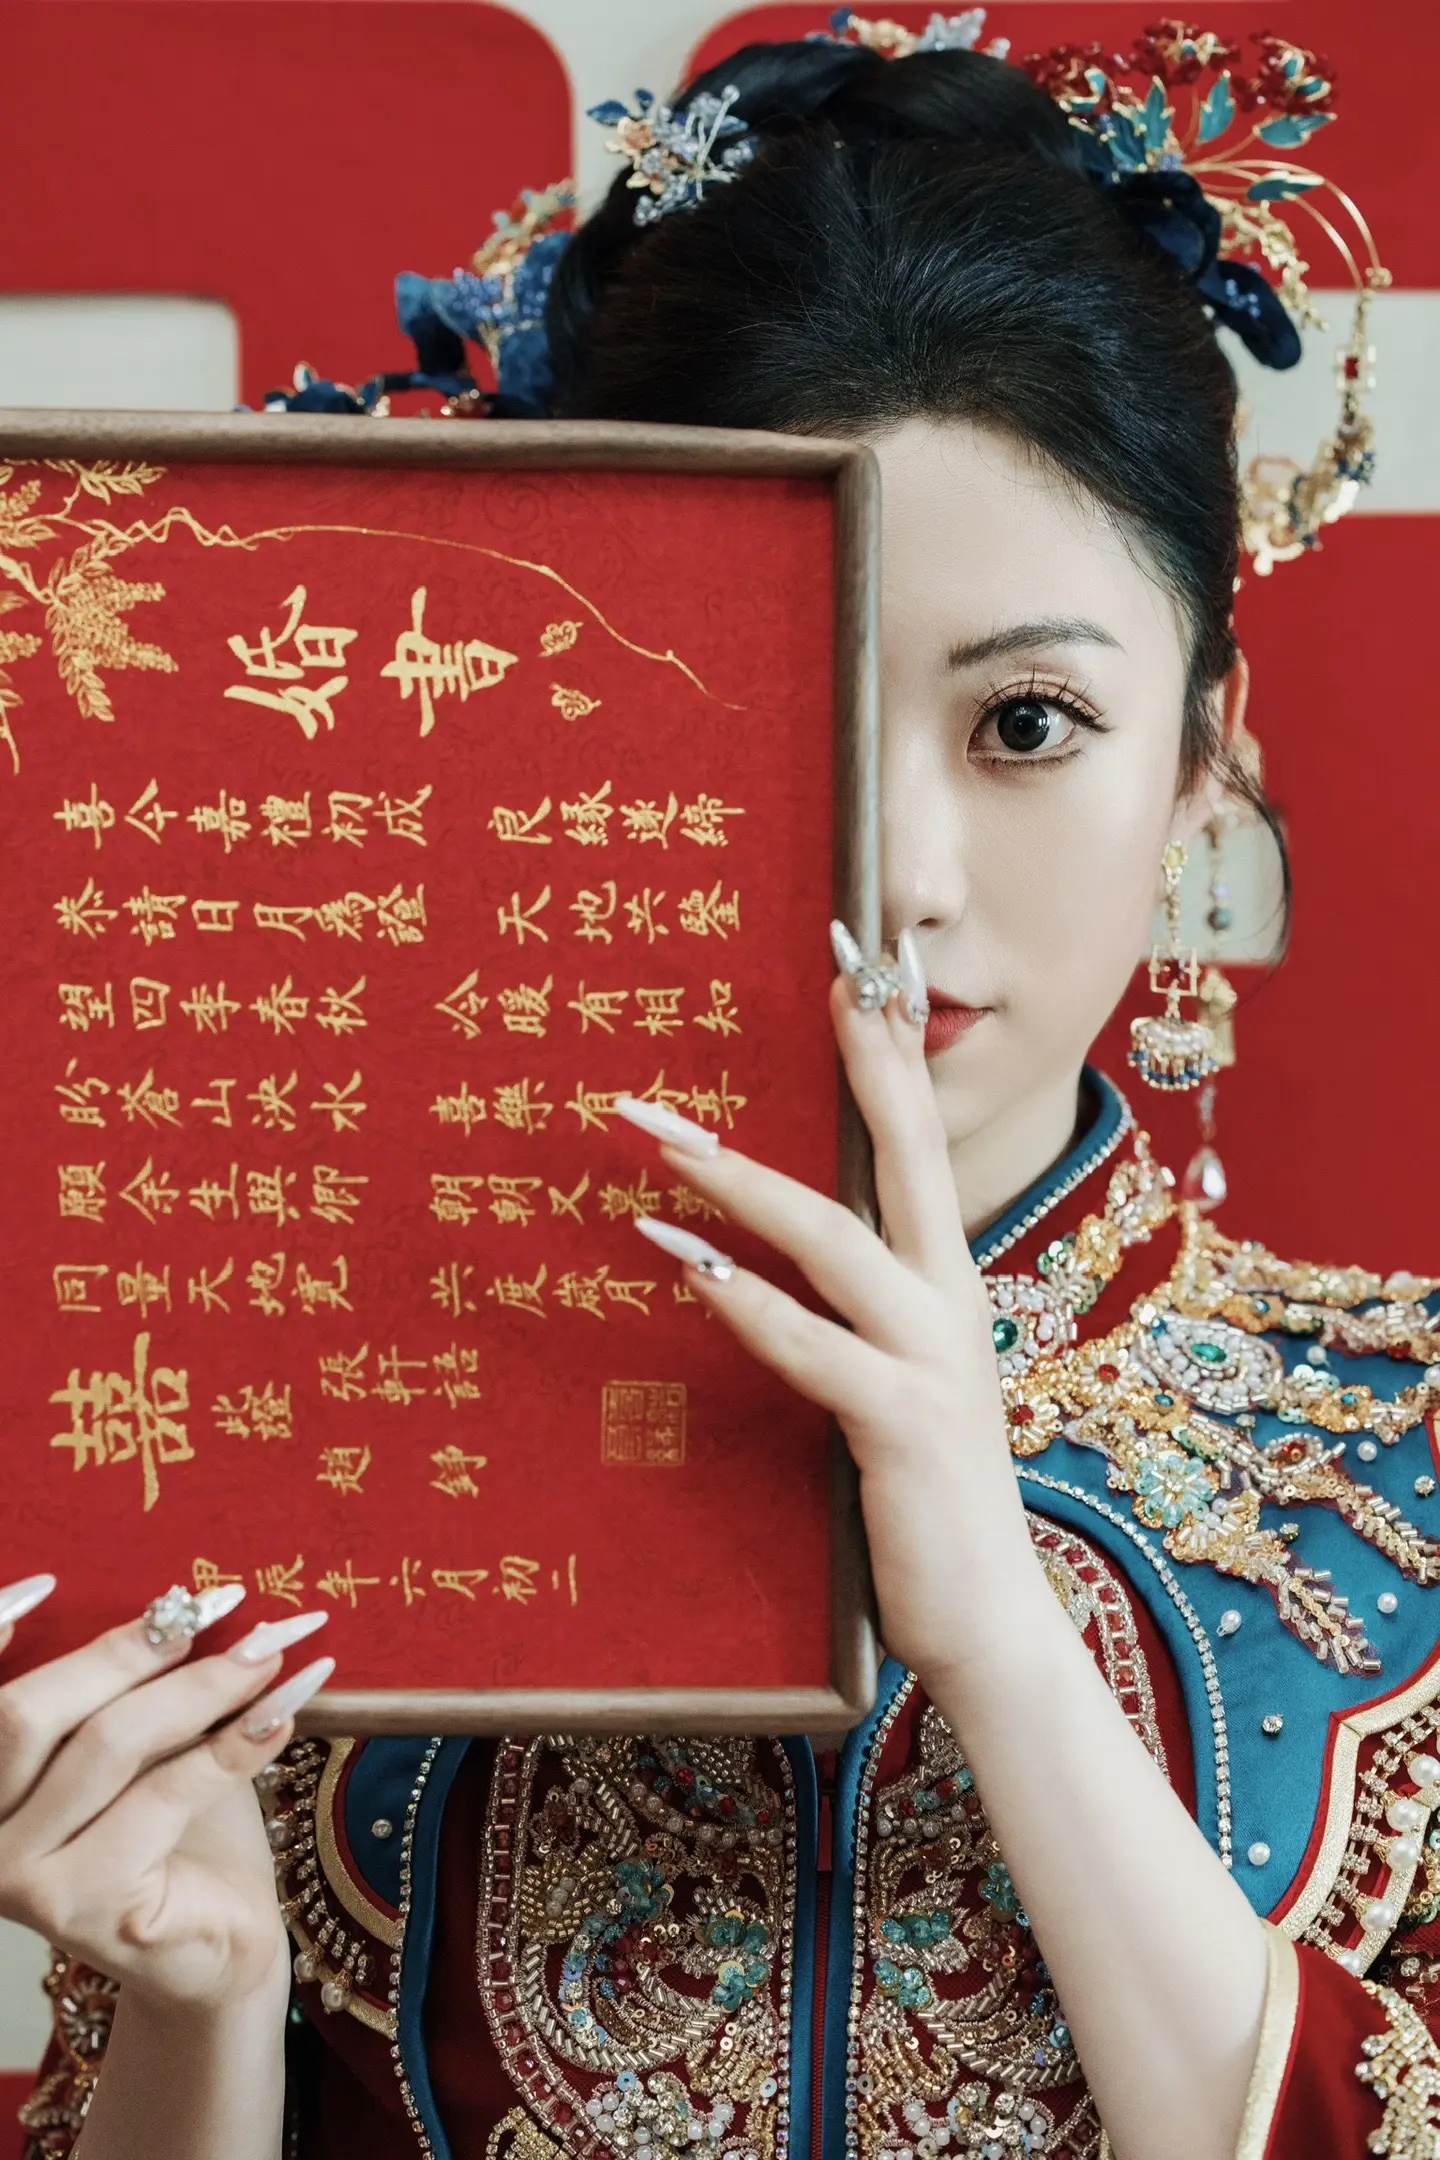 婚書
喜今嘉禮初成 良緣遂締
恭請日月爲證 天地共鑒
望四季春秋 冷暖有相知
盼蒼山泱水 喜樂有分享
願余生與卿 朝朝又暮暮
同量天地寬 共度歲月
囍
此證
張軒語
趙錚
甲辰年六月初二